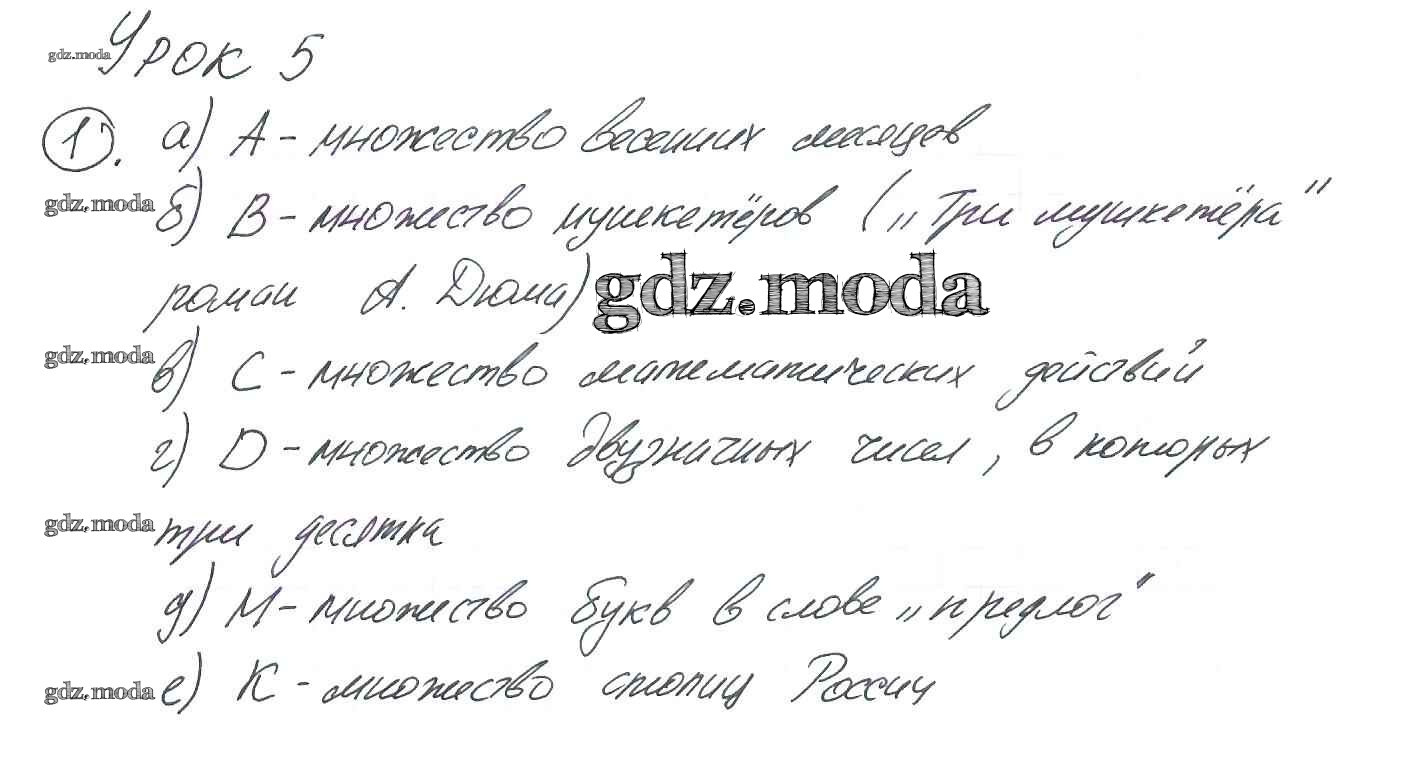 gdz.moda Урок 5
1. а) А - множество весенних месяцев
gdz.moda б) В - множество мушкетёров („Три мушкетёра"
роман А. Дюма) gdz.moda
gdz.moda в) С - множество математических действий
г) D - множество двузначных чисел, в которых
gdz.moda три десятка
д) М - множество букв в слове „предлог"
gdz.moda е) К - множество столиц России